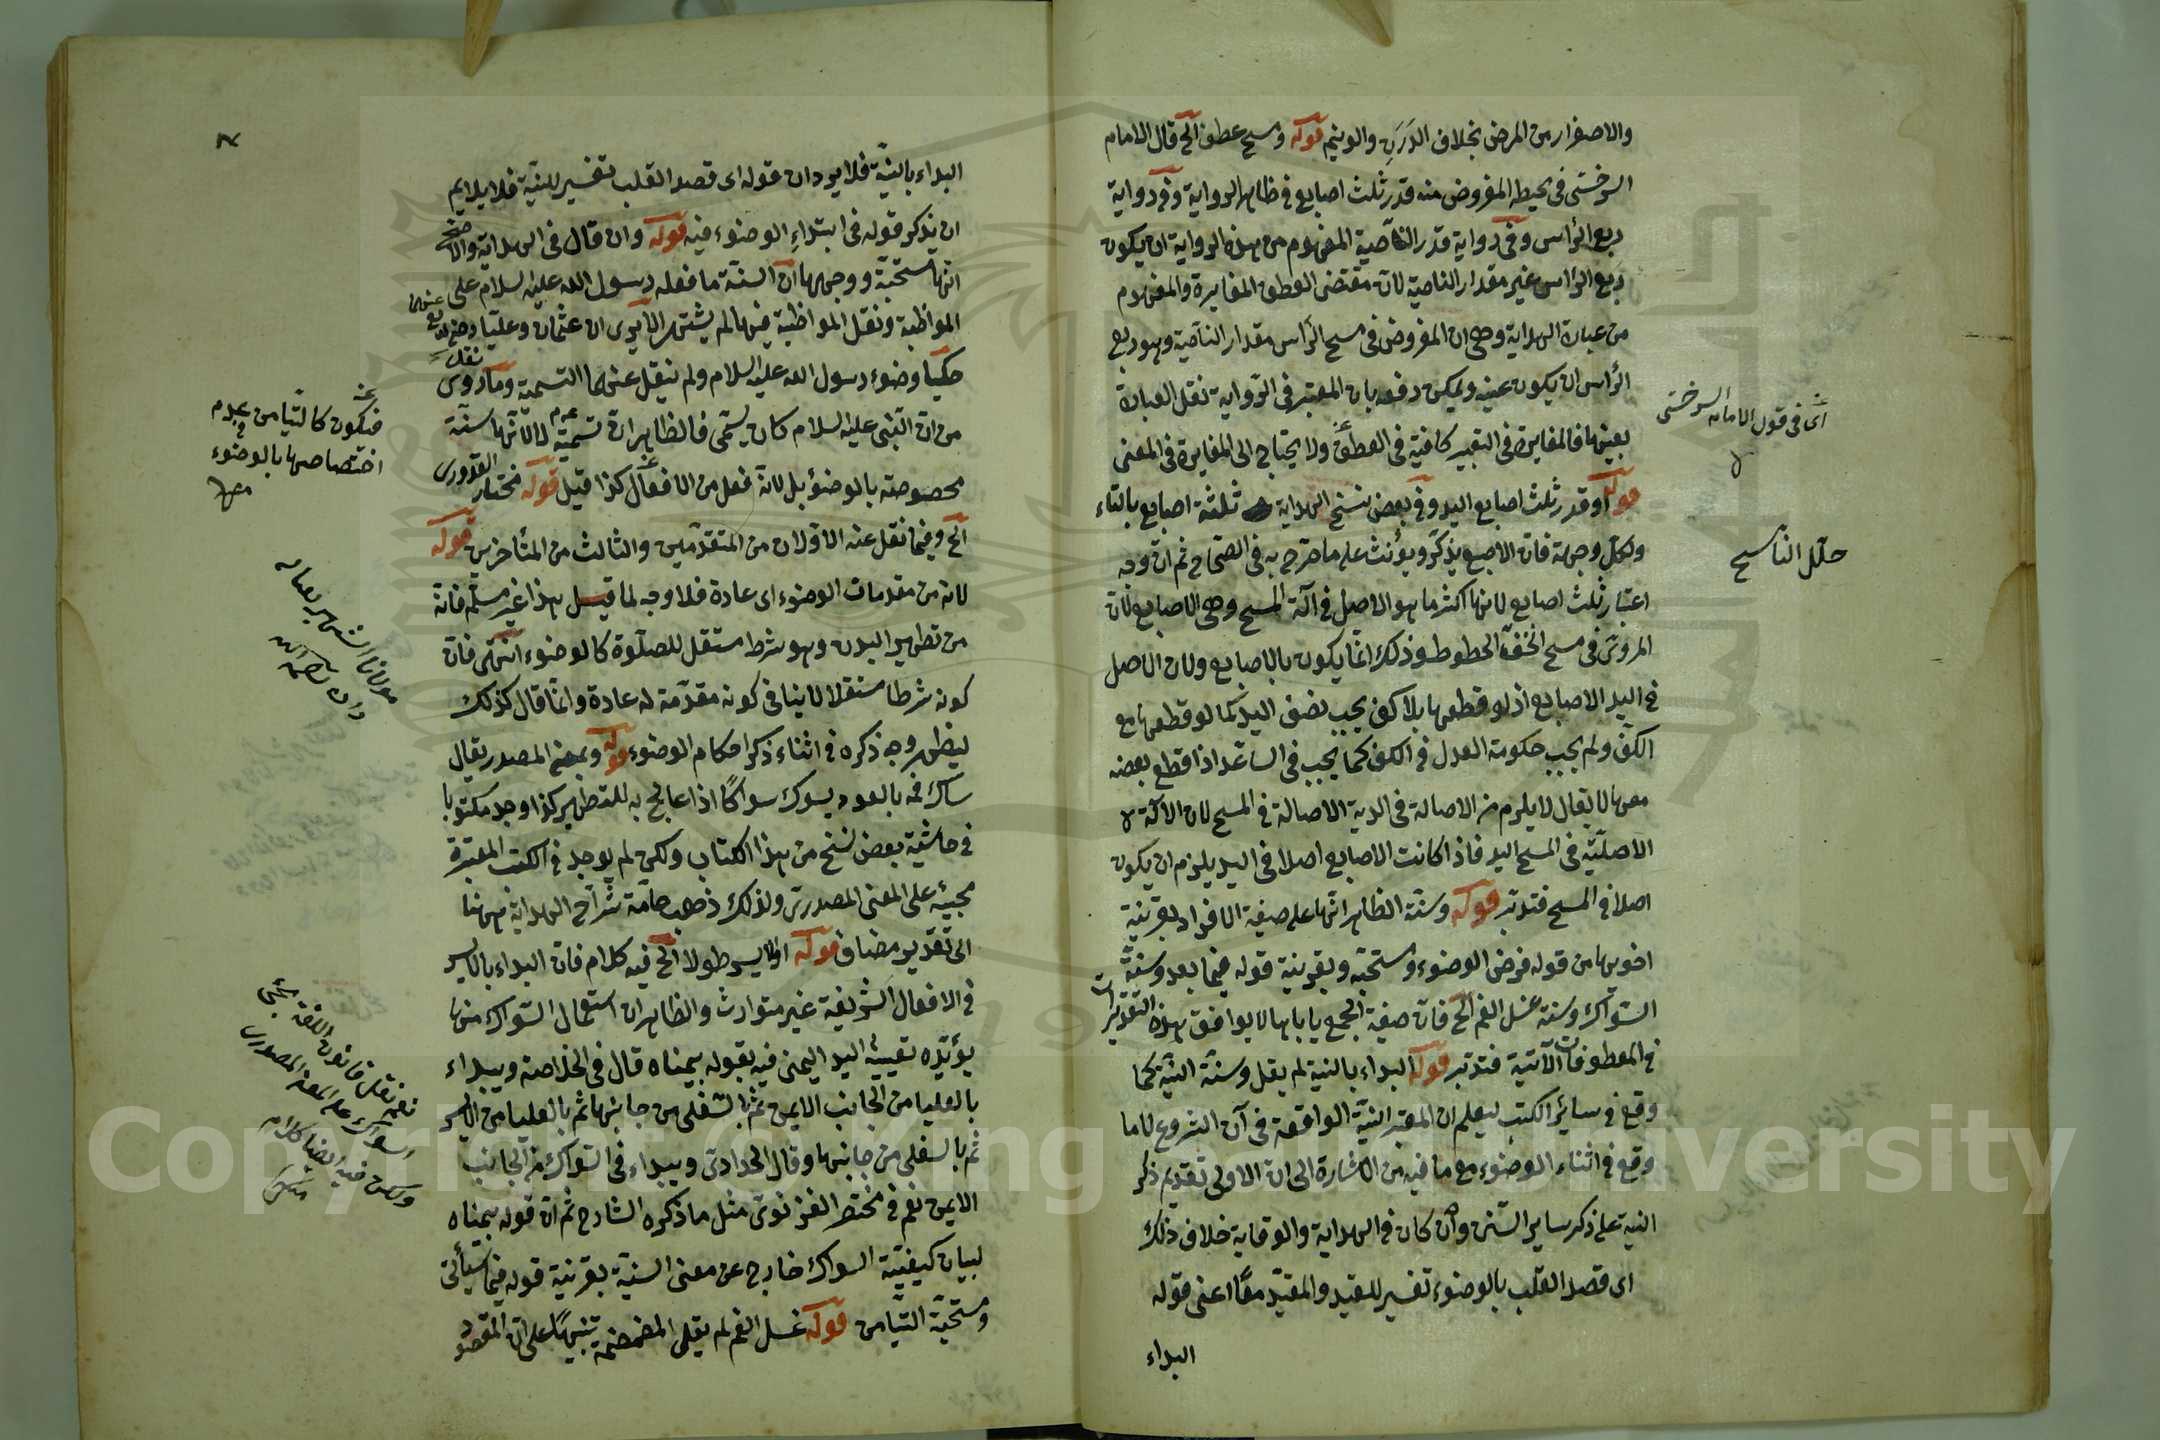 والاصفرار من المرض بخلاف الدرن والونيم قوله ومسح عطف الخ قال الامام
السرخسى فى محيطه المفروض منه قدر ثلث اصابع فى ظاهر الرواية وفى رواية
ربع الرأس وفى رواية قدر الناصية المفهوم من هذه الرواية ان يكون
ربع الرأس غير مقدار الناصية لان مقتضى العطف المغايرة والمفهوم
من عبارة الهداية وهى ان المفروض فى مسح الرأس مقدار الناصية وهو ربع
الرأس ان يكون عينه ويمكن دفعه بان المعتبر فى الرواية نقل العبارة
بعينها فالمغايرة فى التعبير كافية فى العطف ولا يحتاج الى المغايرة فى المعنى
قوله او قدر ثلث اصابع اليد وفى بعض نسخ الهداية ثلثة اصابع بالتاء
ولكل وجهة فان الاصبع يذكر ويؤنث على ما صرح به فى الصحاح ثم ان وجه
اعتبار ثلث اصابع لانها اكثر ما هو الاصل فى آلة المسح وهى الاصابع لان
المروى فى مسح الخف الخطوط وذلك انما يكون بالاصابع ولان الاصل
فى اليد الاصابع اذ لو قطعها بلا كف يجب نصف اليد كما لو قطعها مع
الكف ولم يجب حكومة العدل فى الكف كما يجب فى الساعد اذا قطع بعضه
معها لا يقال لا يلزم من الاصالة فى الدية الاصالة فى المسح لان الآلة
الاصلية فى المسح اليد فاذا كانت الاصابع اصلا فى اليد يلزم ان يكون
اصلا فى المسح فتدبر قوله وسنة الظاهر انها على صيغة الافراد بقرينة
اخويها من قوله فرض الوضوء ومستحبه وبقرينة قوله فيما بعد وسنة
السواك وسنة غسل الفم الخ فان صيغة الجمع يأباها لا يوافق هذه التقديرات
فى المعطوفات الآتية فتدبر قوله البداء بالنية لم يقل وسنة النية كما
وقع فى سائر الكتب ليعلم ان المعتبر النية الواقعة فى آن الشروع لا ما
وقع فى اثناء الوضوء مع ما فيه من الاشارة الى ان الاولى تقديم ذكر
النية على ذكر ساير السنن وان كان فى الهداية والوقاية خلاف ذلك
اى قصد القلب بالوضوء تفسير للقيد والمقيد معا اعنى قوله
البداء
اى فى قول الامام السرخسى
حلل الناسح
البداء بالنية فلا يرد ان قوله اى قصد القلب تفسير للنية فلا يلايم
ان يذكر قوله فى ابتداء الوضوء فيه قوله وان قال فى الهداية والاصح
انها مستحبة ووجهها ان السنة ما فعله رسول الله عليه السلام على
المواظبة ونقل المواظبة فيها لم يشتهر الا يرى ان عثمان وعليا رضى الله تع عنهما
حكيا وضوء رسول الله عليه السلام ولم ينقل عنهما التسمية وما روى نقل
من ان النبى عليه السلام كان يسمى فالظاهر ان تسميته عم لا لانها سنة
مخصوصة بالوضوء بل لانه فعل من الافعال كذا قيل قوله مختار القدورى
الخ وفيما نقل عنه الاولان من المتقدمين والثالث من المتأخرين قوله
لانه من مقدمات الوضوء اى عادة فلا وجه لما قيل هذا غير مسلم فانه
من تطهير البدن وهو شرط مستقل للصلوة كالوضوء انتهى فان
كونه شرطا مستقلا لا ينافى كونه مقدمة له عادة وانما قال كذلك
ليظهر وجه ذكره فى اثناء ذكر احكام الوضوء قوله وبمعنى المصدر يقال
ساك فمه بالعود يسوك سواكا اذا عالج به للتطهير كذا وجد مكتوبا
فى حاشية بعض نسخ من هذا الكتاب ولكن لم يوجد فى الكتب المعتبرة
مجيئه على المعنى المصدرى ولذلك ذهب عامة شراح الهداية ههنا
الى تقدير مضاف قوله الايسر طولا الخ فيه كلام فان البداء بالايسر
فى الافعال الشريفة غير متوارث والظاهر ان استعمال السواك منها
يؤيده تعيين اليد اليمنى فيه بقوله بيمناه قال فى الخلاصة ويبداء
بالعليا من الجانب الايمن ثم بالسفلى من جانبها ثم بالعليا من الايسر
ثم بالسفلى من جانبها وقال الحدادى ويبداء فى السواك من الجانب
الايمن نعم فى مختصر الغزنوى مثل ما ذكره الشارح ثم ان قوله بيمناه
لبيان كيفية السواك خارج عن معنى السنية بقرينة قوله فيما سيأتى
ومستحبه التيامن قوله غسل الفم لم يقل المضمضة تنبيها على ان المقصود
فتكون كالتيامن عدم
اختصاصها بالوضوء
منه